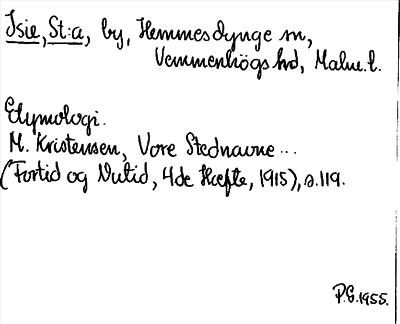 Isie, St:a, by, Hemmesdynge sn,
Vemmenhögs hd, Malm. l.
Etymologi.
M. Kristensen, Vore Stednavne ...
(Fortid og Nutid, 4de Hæfte, 1915), s. 119.
P.G. 1955.